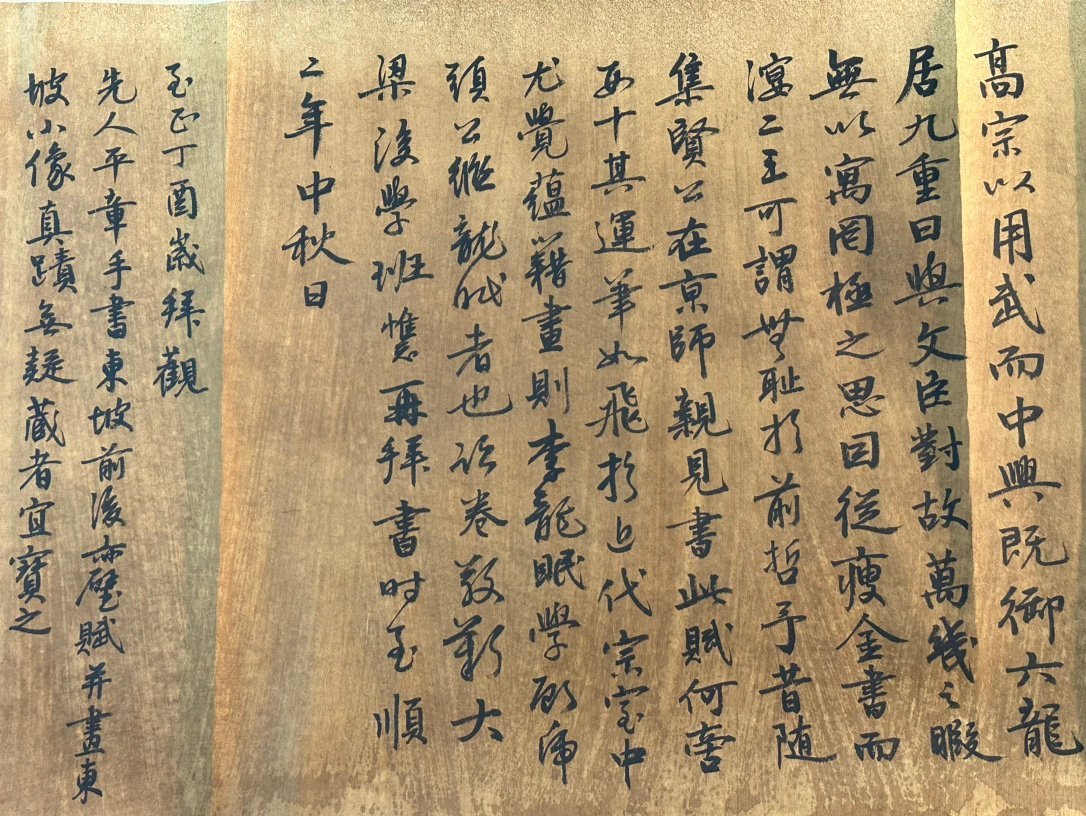 高宗以用武而中興既御六龍
居九重日與文臣對故萬幾之暇
無以寓罔極之思因從瘦金書而
㝠二王可謂無恥於前哲予昔随
集賢公在京師親見書此賦何啻
數十其運筆如飛於近代宗室中
尤覺蘊藉畫則李龍眠學顧虎
頭公繼龍眠者也詠卷敬歎大
梁後學班惟再拜書時至順
二年中秋日
至正丁酉歲拜觀
先人平章手書東坡前後赤壁賦并畫東
坡小像真蹟無疑藏者宜寶之